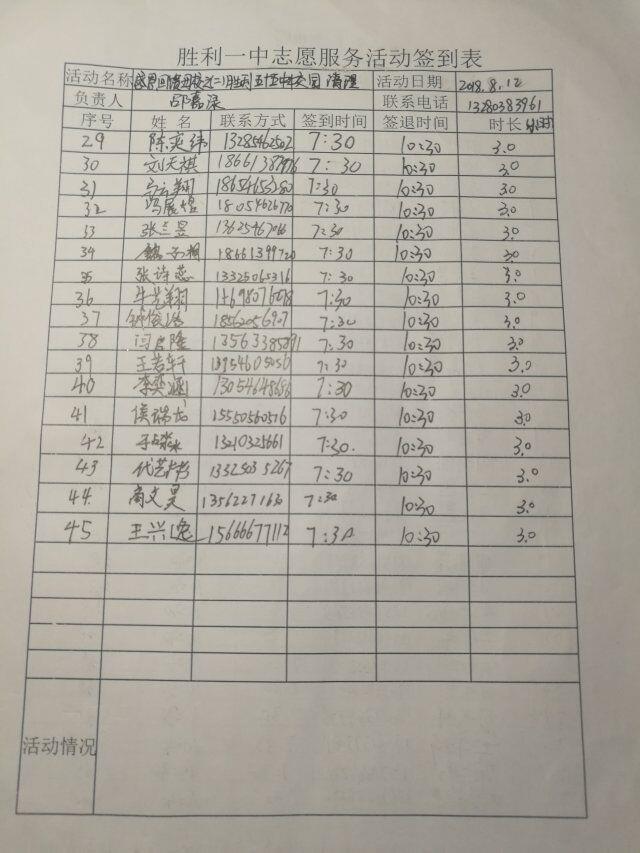 胜利一中志愿服务活动签到表
活动名称 胜利五十五中校园 清理 活动日期 2018.8.12
负责人 邱嘉深 联系电话 13280383961
序号 姓名 联系方式 签到时间 签退时间 时长 小时
29 陈奕纬 13285462502 7:30 10:30 3.0
30 刘天祺 7:30 10:30 3.0
31 18654653280 7:30 10:30 3.0
32 冯展煜 18054626770 7:30 10:30 3.0
33 张兰昱 7:30 10:30 3.0
34 18661399720 7:30 10:30 3.0
35 张诗蕊 13325065316 7:30 10:30 3.0
36 牛艺翔 7:30 10:30 3.0
37 18562056907 7:30 10:30 3.0
38 闫启隆 7:30 10:30 3.0
39 王若轩 13954605050 7:30 10:30 3.0
40 李奕涵 13054648686 7:30 10:30 3.0
41 侯瑞龙 15550560516 7:30 10:30 3.0
42 13210325661 7:30 10:30 3.0
43 13325035267 7:30 10:30 3.0
44 商文昊 13562271630 7:30 10:30 3.0
45 王兴逸 15666677112 7:30 10:30 3.0
活动情况